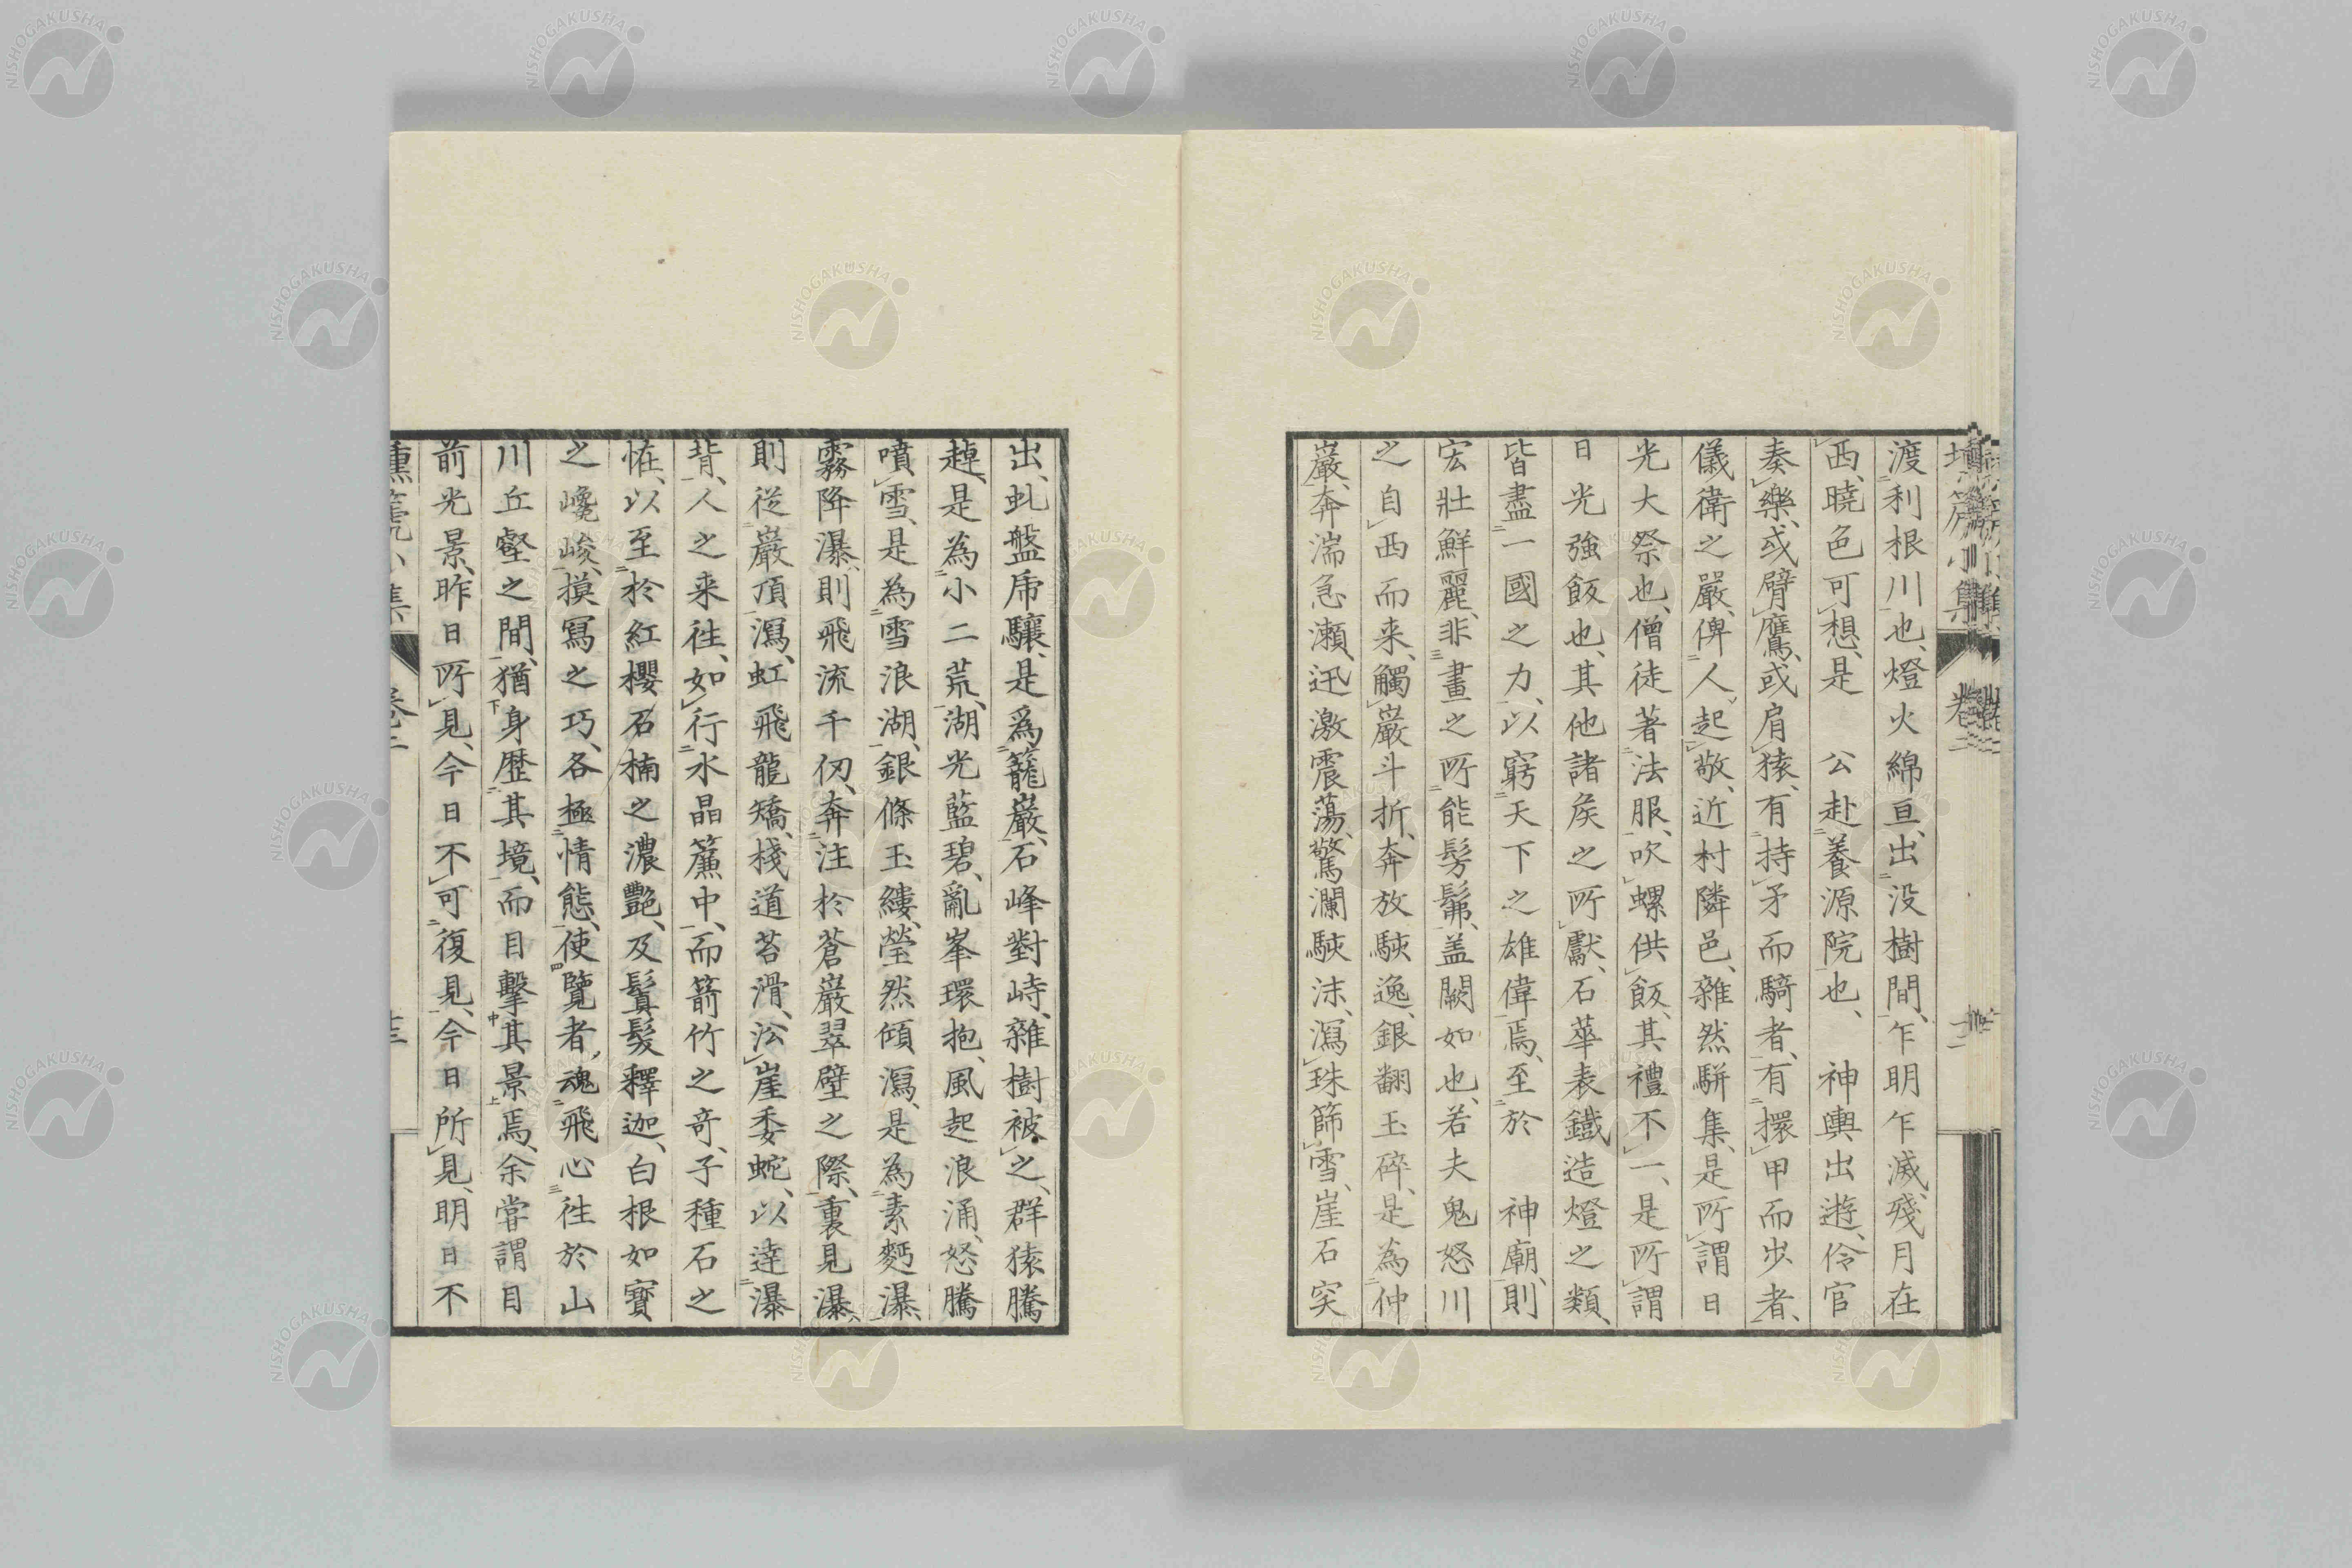 渡利根川也、燈火綿亘、出没樹間、乍明乍滅、殘月在
西、曉色可想、是　公赴養源院也、　神輿出遊、伶官
奏樂、或臂鷹、或肩猿、有持矛而騎者、有擐甲而步者、
儀衛之嚴、俾人起敬、近村隣邑、雜然駢集、是所謂日
光大祭也、僧徒著法服、吹螺供飯、其禮不一、是所謂
日光強飯也、其他諸矦之所獻、石華表鐵造燈之類、
皆盡一國之力、以窮天下之雄偉焉、至於　神廟、則
宏壯鮮麗、非畫之所能髣髴、盖闕如也、若夫鬼怒川
之自西而来、觸巖斗折、奔放駛逸、銀翻玉碎、是為仲
巖、奔湍急瀬、迅激震蕩、驚瀾駛沫、瀉珠篩雪、崖石突
出、虬盤席驤、是為籠巖、石峰對峙、雜樹被之、群猿騰
趠、是為小二荒、湖光藍碧、亂峯環抱、風起浪涌、怒騰
噴雪、是為雪浪湖、銀條玉縷、瑩然傾瀉、是為素麪瀑、
霧降瀑、則飛流千仞、奔注於蒼巖翠壁之際、裏見瀑、
則従巖頂瀉、虹飛龍矯、棧道苔滑、㳂崖委蛇、以達瀑
背、人之来徃、如行水晶簾中、而箭竹之奇、子種石之
恠、以至於紅櫻石楠之濃艷、及鬒髮釋迦、白根如寶
之巉峻、摸寫之巧、各極情態、使覽者、魂飛心徃於山
川丘壑之間、猶身歴其境、而目擊其景焉、余嘗謂目
前光景、昨日所見、今日不可復見、今日所見、明日不
壎篪小集
卷二
壎篪小集
卷二